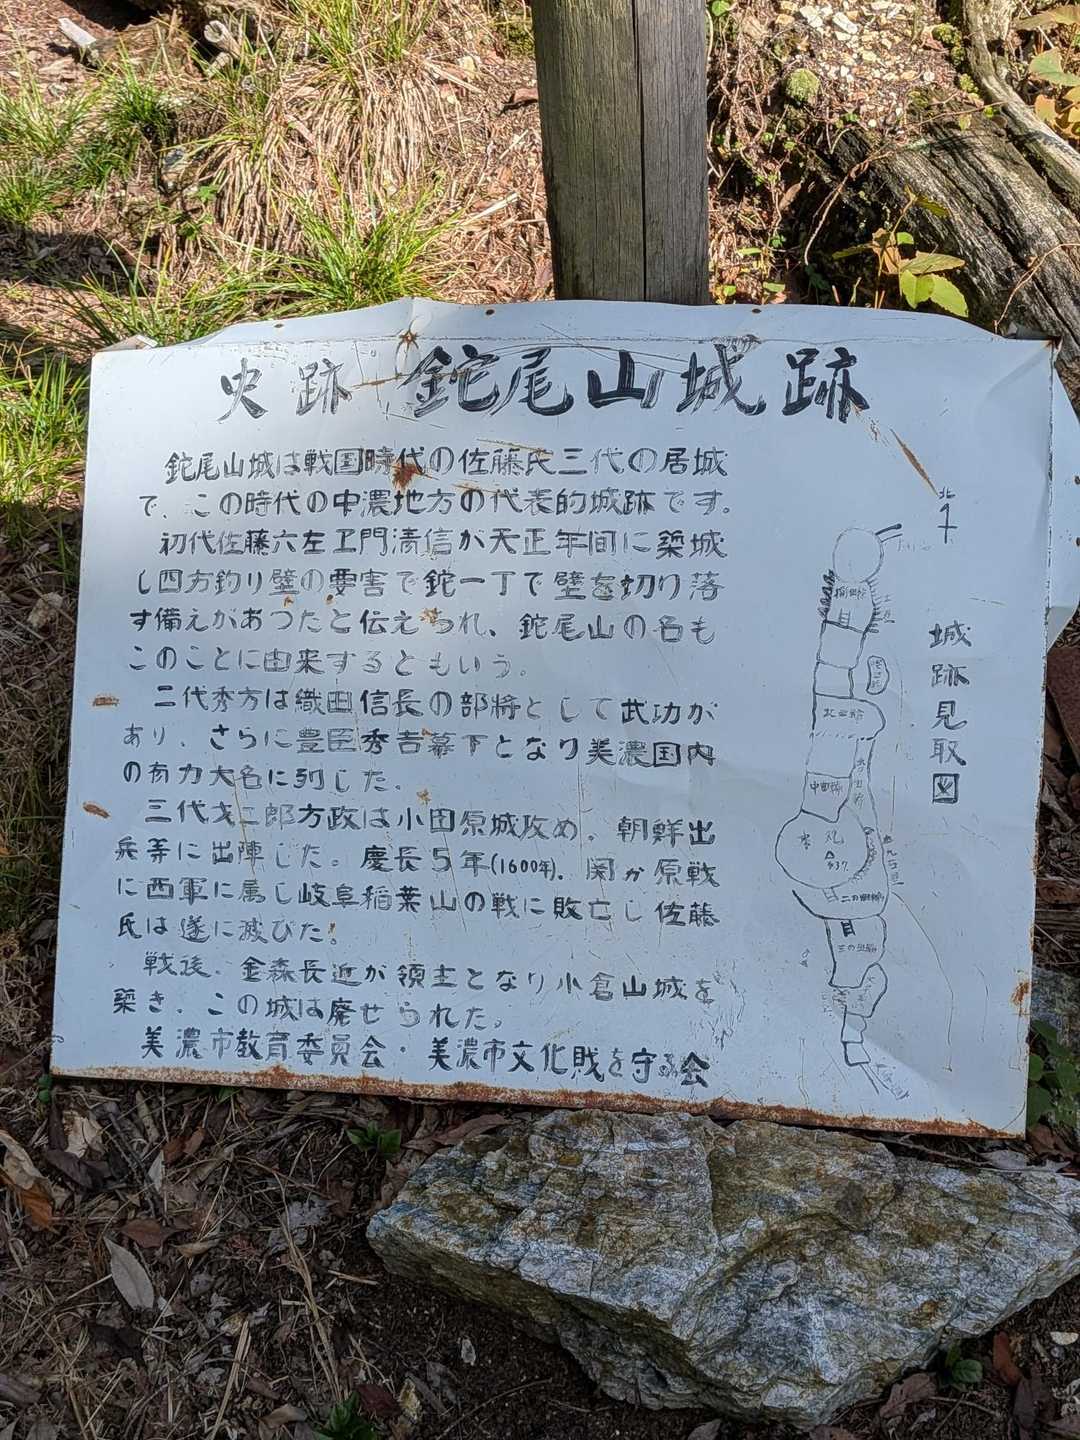 史跡 鉈尾山城跡
鉈尾山城は戦国時代の佐藤氏三代の居城
で、この時代の中濃地方の代表的城跡です。
初代佐藤六左ヱ門清信が天正年間に築城
し四方釣り壁の要害で鉈一丁で壁を切り落
す備えがあったと伝えられ、鉈尾山の名も
このことに由来するともいう。
二代秀方は織田信長の部将として武功が
あり、さらに豊臣秀吉幕下となり美濃国内
の有力大名に列した。
三代才二郎方政は小田原城攻め、朝鮮出
兵等に出陣した。慶長5年(1600年)、関が原戦
に西軍に属し岐阜稲葉山の戦に敗亡し佐藤
氏は遂に滅びた。
戦後、金森長近が領主となり小倉山城を
築き、この城は廃せられた。
美濃市教育委員会・美濃市文化財を守る会
城跡見取図
北
本丸